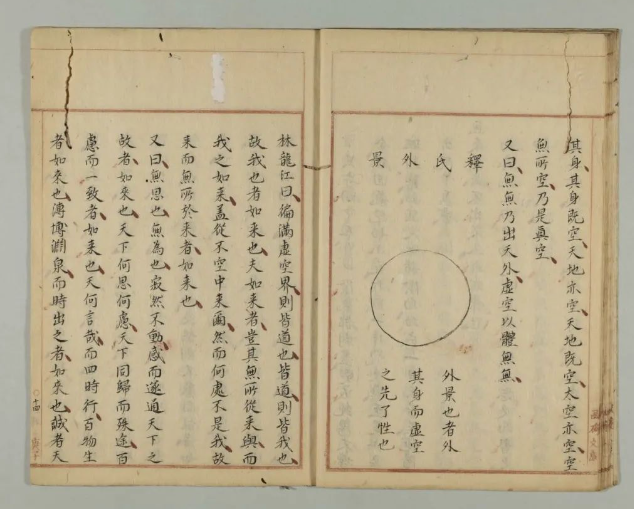 其身其身既空天地亦空天地既空太空亦空空
無所空乃是真空
又曰無無乃出天外虛空以體無無
釋氏外景
外景也者外
其身而虛空
之先了性也
林龍江曰徧滿虛空界則皆道也皆道則皆我也
故我也者如來也夫如來者豈其無所從來與而
我之如來蓋從不空中來爾然而何處不是我故
來而無所於來者如來也
又曰無思也無為也寂然不動感而遂通天下之
故者如來也天下何思何慮天下同歸而殊途百
慮而一致者如來也天何言哉而四時行百物生
者如來也溥博淵泉而時出之者如來也誠者天
十四